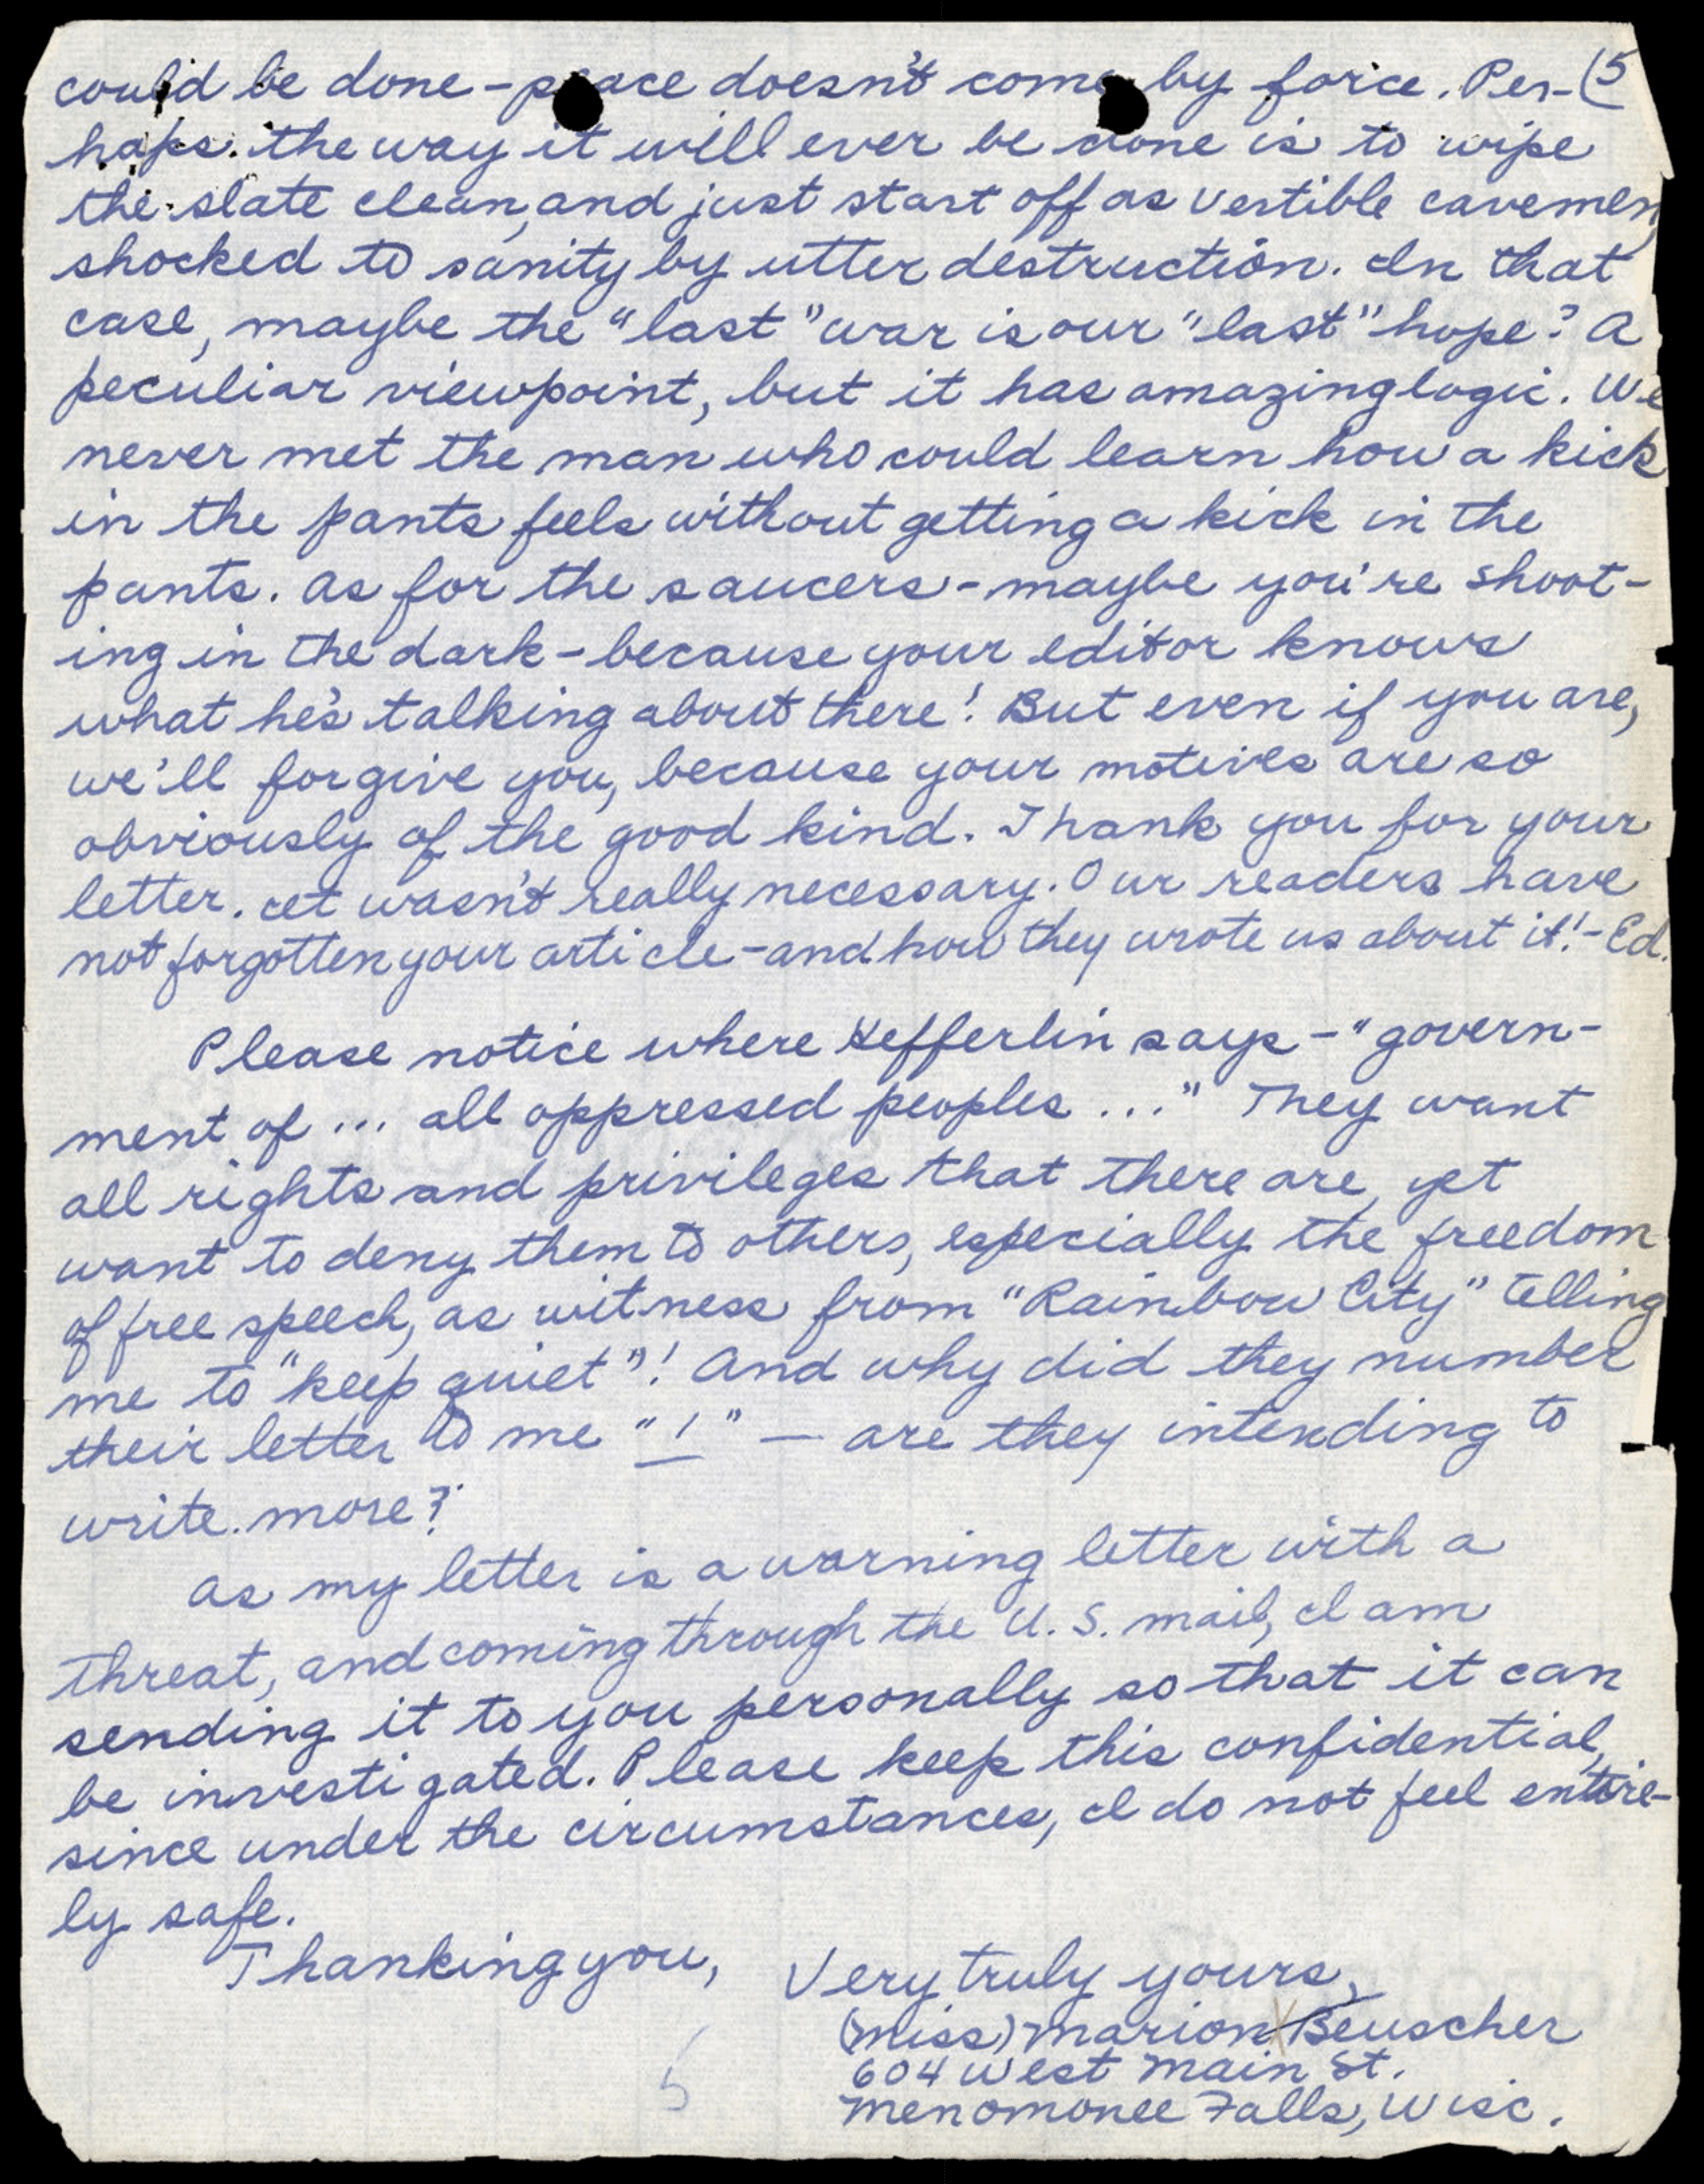 could be done - peace doesn't come by force. Per- (5
haps the way it will ever be done is to wipe
the slate clean, and just start off as vertible cavemen,
shocked to sanity by utter destruction. In that
case, maybe the "last" war is our "last" hope? A
peculiar viewpoint, but it has amazing logic. We
never met the man who could learn how a kick
in the pants feels without getting a kick in the
pants. As for the saucers - maybe you're shoot-
ing in the dark - because your editor knows
what he's talking about there! But even if you are,
we'll forgive you, because your motives are so
obviously of the good kind. Thank you for your
letter. It wasn't really necessary. Our readers have
not forgotten your article - and how they wrote us about it! - Ed.
Please notice where Hefferlin says - "govern-
ment of ... all oppressed peoples ..." They want
all rights and privileges that there are, yet
want to deny them to others, especially the freedom
of free speech, as witness from "Rainbow City" telling
me to "keep quiet"! And why did they number
their letter to me "1" — are they intending to
write more?
As my letter is a warning letter with a
threat, and coming through the U.S. mail, I am
sending it to you personally so that it can
be investigated. Please keep this confidential,
since under the circumstances, I do not feel entire-
ly safe.
Thanking you,
Very truly yours,
(Miss) Marion Beuscher
604 West Main St.
Menomonee Falls, Wisc.
5